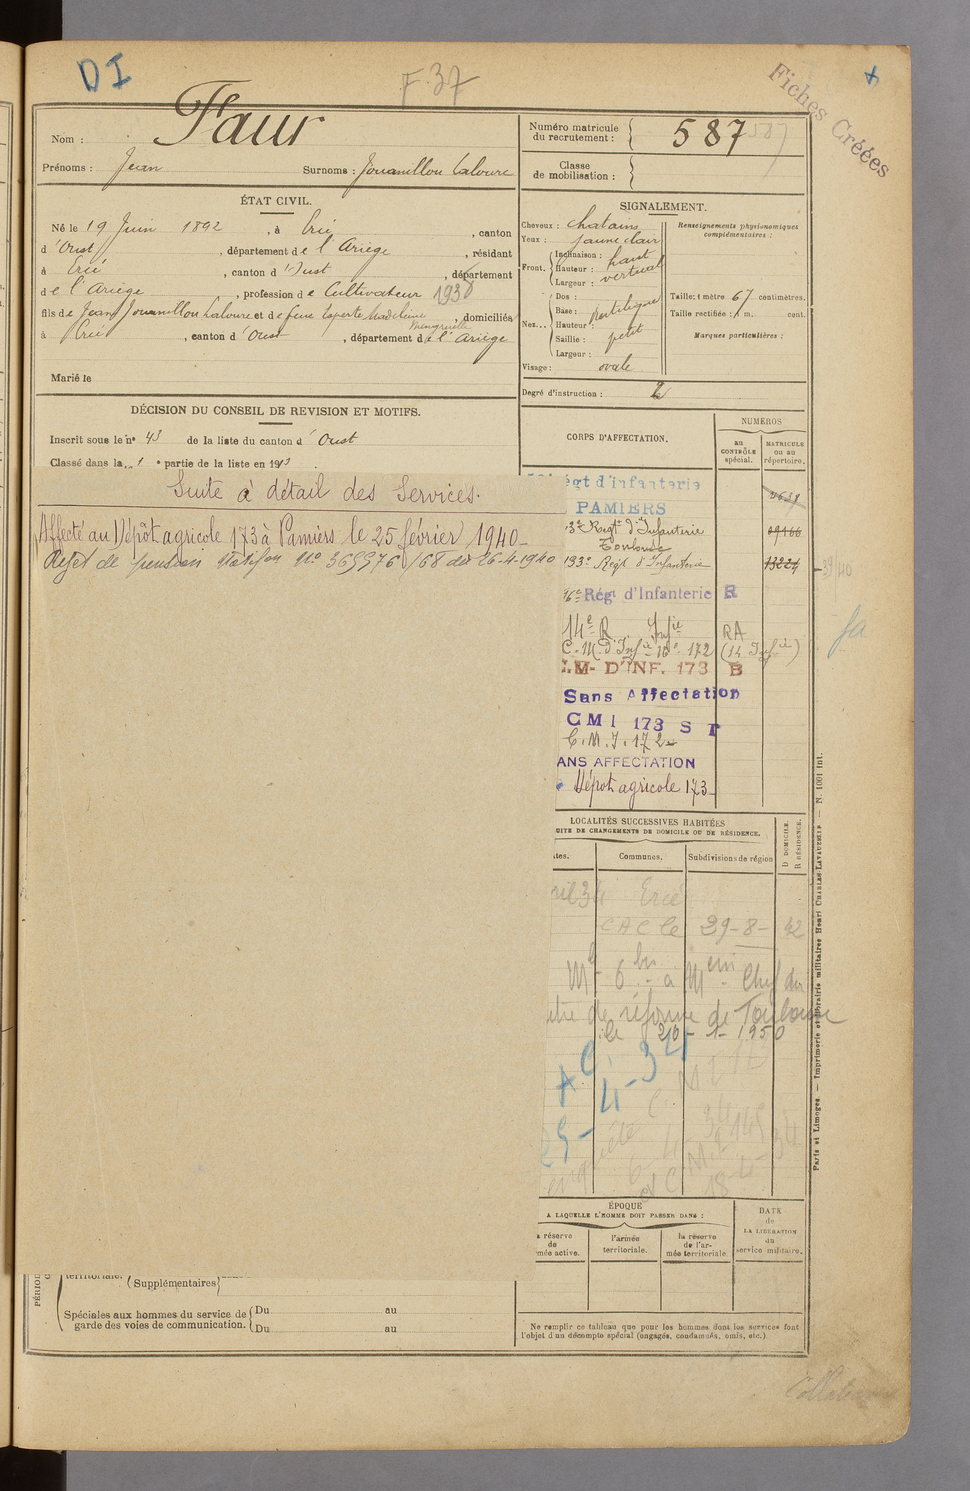 DI
F. 37
Fiches Créées
Nom : Faur
Prénoms : Jean
Surnoms : Jouanillou Laloure
Numéro matricule du recrutement : 587
587
Classe de mobilisation :
ÉTAT CIVIL.
Né le 19 Juin 1892, à Ercé, canton
d'Oust, département de l'Ariège, résidant
à Ercé, canton d'Oust, département
de l'Ariège, profession de Cultivateur 1930
fils de Jean Jouanillou Laloure et de feue Laporte Madeleine, domiciliés
à Ercé, canton d'Oust, département de l'Ariège
Marié le
SIGNALEMENT.
Cheveux : chatains
Yeux : jaune clair
Front. Inclinaison : haut
Hauteur : vertical
Largeur :
Nez... Dos :
Base : rectiligne
Hauteur :
Saillie : petit
Largeur :
Visage : ovale
Renseignements physionomiques complémentaires :
Taille : 1 mètre 67 centimètres.
Taille rectifiée : 1 m. cent.
Marques particulières :
Degré d'instruction : 2
DÉCISION DU CONSEIL DE REVISION ET MOTIFS.
Inscrit sous le n° 43 de la liste du canton d'Oust
Classé dans la 1e partie de la liste en 1913.
Suite à détail des Services.
Affecté au Dépôt agricole 173 à Pamiers le 25 février 1940
Rejet de pension No 365976/68 du 26-4-1940
CORPS D'AFFECTATION.
NUMÉROS
au CONTRÔLE spécial.
MATRICULE ou au répertoire.
égt d'infanterie
PAMIERS
3e Régt d'Infanterie
Toulouse
133e Régt d'Infanterie
13224
6e Régt d'Infanterie R
14e R. Infie RA
C.M. d'Infie No 172 (14 Infie)
C.M- D'INF. 173 B
Sans Affectation
CMI 173 S T
C.M.I. 172
ANS AFFECTATION
Dépôt agricole 173
LOCALITÉS SUCCESSIVES HABITÉES
UITE DE CHANGEMENTS DE DOMICILE OU DE RÉSIDENCE.
tes.
Communes.
Subdivisions de région
D DOMICILE.
R RÉSIDENCE.
ril 34 Ercé
CAC le 29-8-42
Chef du
tre de réforme de Toulouse
le 20-1-1950
ÉPOQUE
A LAQUELLE L'HOMME DOIT PASSER DANS :
a réserve de mée active.
l'armée territoriale.
la réserve de l'armée territoriale.
DATE de LA LIBÉRATION du service militaire.
territoriale. Supplémentaires
Spéciales aux hommes du service de garde des voies de communication. Du au
Du au
Ne remplir ce tableau que pour les hommes dont les services font
l'objet d'un décompte spécial (engagés, condamnés, omis, etc.).
Paris et Limoges. — Imprimerie et librairie militaires Henri CHARLES-LAVAUZELLE — N. 1001 int.